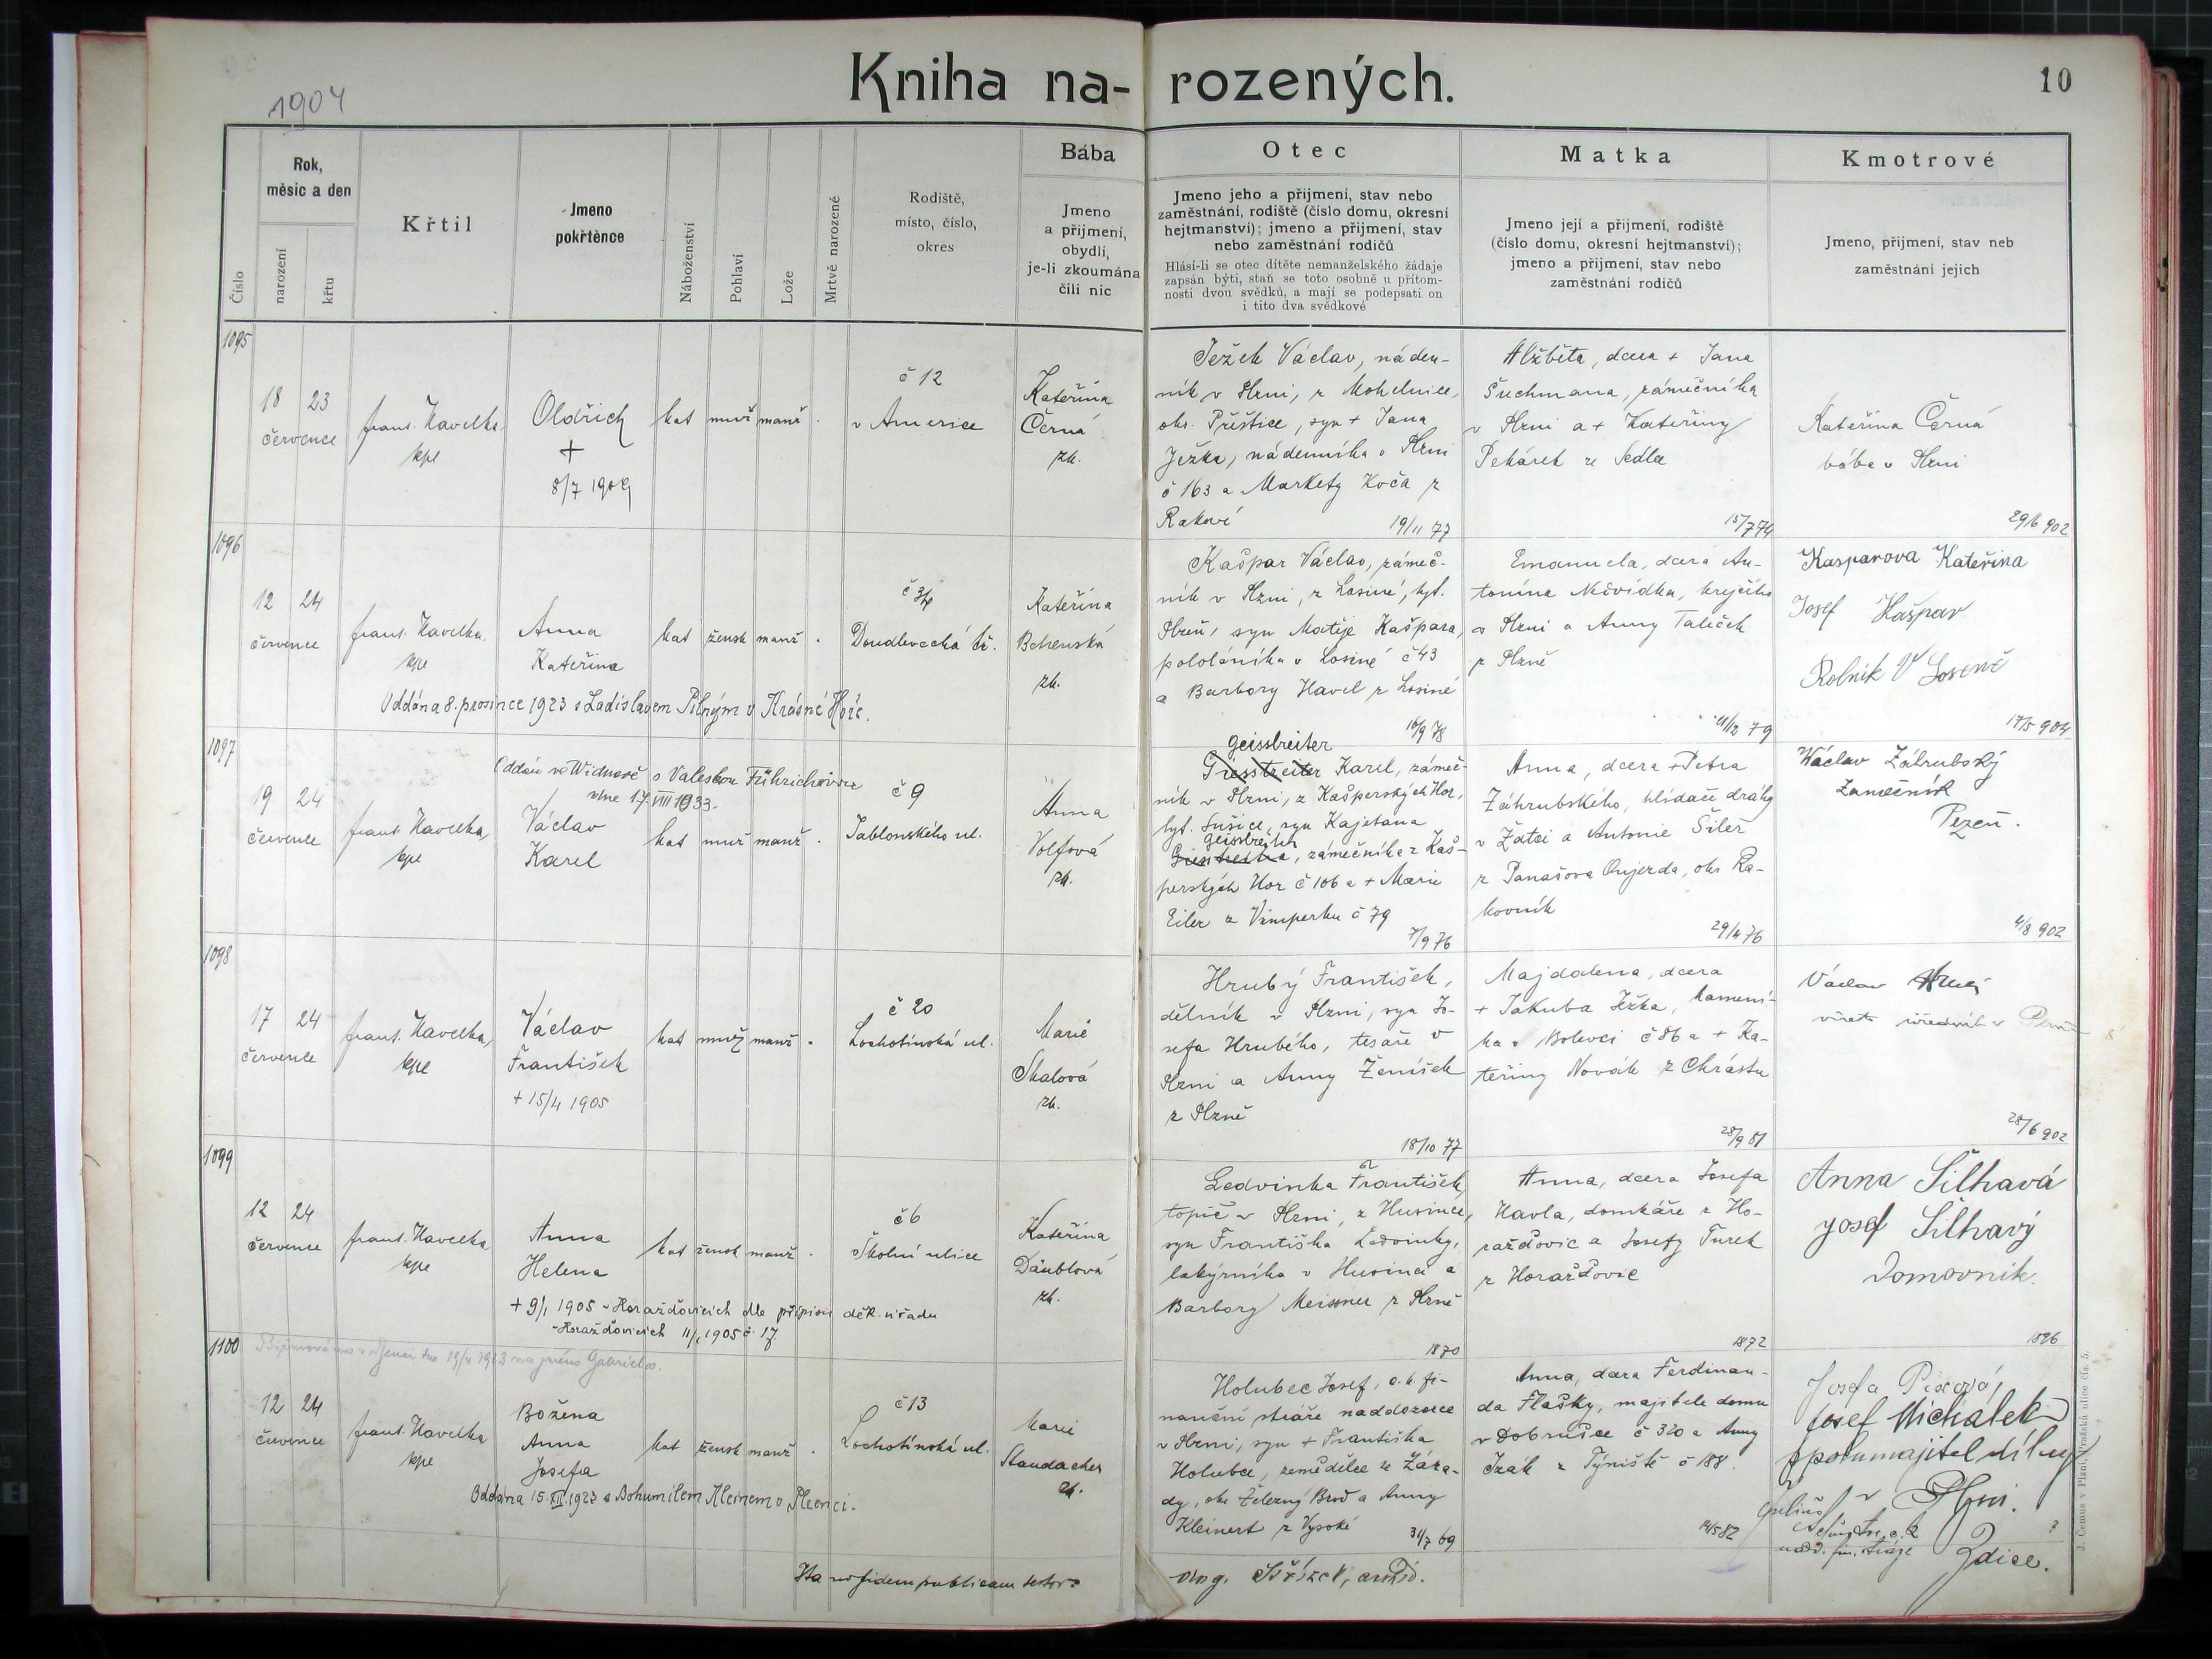 1904
Kniha narozených.
10
Číslo
Rok,
měsíc a den
narození
křtu
Křtil
Jmeno
pokřtěnce
Náboženství
Pohlaví
Lože
Mrtvě narozené
Rodiště,
místo, číslo,
okres
Bába
Jmeno
a přijmení,
obydlí,
je-li zkoumána
čili nic
Otec
Jmeno jeho a přijmení, stav nebo
zaměstnání, rodiště (číslo domu, okresní
hejtmanství); jmeno a přijmení, stav
nebo zaměstnání rodičů
Hlásí-li se otec dítěte nemanželského žádaje
zapsán býti, staň se toto osobně u přítom-
nosti dvou svědků, a mají se podepsati on
i tito dva svědkové
Matka
Jmeno její a přijmení, rodiště
(číslo domu, okresní hejtmanství);
jmeno a přijmení, stav nebo
zaměstnání rodičů
Kmotrové
Jmeno, přijmení, stav neb
zaměstnání jejich
1095
18 23
července
frant. Havelka
kpl
Oldřich
+
8/7 1909
kat muž manž .
č 12
v Americe
Kateřina
Černá
zk.
Ježek Václav, náden-
ník v Plzni, z Mohelnice,
okr. Přeštice, syn + Jana
Ježka, nádenníka v Plzni
č 163 a Markety Koča z
Rakové
19/11 77
Alžběta, dcera + Jana
Suchmana, zámečníka
v Plzni a + Kateřiny
Pekárek ze Sedla
15/7 74
Kateřina Černá
bába v Plzni
29/6 902
1096
12 24
července
frant. Havelka,
kpl
Anna
Kateřina
kat žensk manž .
Doudlevecká tř.
Kateřina
zk.
Oddána 8. prosince 1923 s Ladislavem Pilným v Krásné Hoře.
Kašpar Václav, zámeč-
ník v Plzni, z Losiné, hjt.
Plzeň, syn Matěje Kašpara,
pololáníka v Losiné č 43
a Barbory Havel z Losiné
16/9 78
Emanuela, dcera An-
tonína Nedvídka, krejčího
v Plzni a Anny Taliček
z Plzně
Kasparova Kateřina
Josef Kašpar
Rolník V Losině
17/5 904
1097
Oddán ve Widnavě s Valeskou Führichovou
dne 17. VIII 1933.
19 24
července
frant. Havelka,
kpl
Václav
Karel
kat muž manž .
č 9
Jablonského ul.
Anna
Volfová
zk.
Geissbreiter
Giesstreiter Karel, zámeč-
ník v Plzni, z Kašperských Hor,
hjt. Sušice, syn Kajetana
Geissbreitra
Giesstreitra, zámečníka z Kaš-
perských Hor č 106 a + Marie
Eiler z Vimperku č 79
7/9 76
Anna, dcera + Petra
Záhrubského, hlídače dráhy
v Žatci a Antonie Šiler
z Panašova Oujezda, okr. Ra-
kovník
29/4 76
Wáclav Záhrubský
Zámečník
Plzeň.
4/8 902
1098
17 24
července
frant. Havelka,
kpl
Václav
František
+ 15/4 1905
kat muž manž .
č 20
Lochotínská ul.
Marie
Skalová
zk.
Hrubý František,
dělník v Plzni, syn Jo-
sefa Hrubého, tesaře v
Plzni a Anny Ženíšek
z Plzně
18/10 77
Majdalena, dcera
+ Jakuba Ježka, kamení-
ka v Bolevci č 86 a + Ka-
teřiny Novák z Chrástu
28/9 81
Václav
28/6 902
1099
12 24
července
frant. Havelka
kpl
Anna
Helena
kat žensk manž .
č 6
Školní ulice
Kateřina
Däublová
zk.
+ 9/1 1905 v Horažďovicích dle přípisu děk. úřadu
v Horažďovicích 11/1 1905 č. 17
Ledvinka František,
topič v Plzni, z Husince,
syn Františka Ledvinky,
lakýrníka v Husinci a
Barbory Meissner z Plzně
1870
Anna, dcera Josefa
Havla, domkáře z Ho-
ražďovic a Josefy Turek
z Horažďovic
1872
Anna Šilhavá
Josef Šilhavý
Domovník.
1896
1100
12 24
července
frant. Havelka
kpl
Božena
Anna
Josefa
kat žensk manž .
č 13
Lochotínská ul.
Marie
Staudacher
zk.
Oddána 15. XII. 1923 s Bohumilem Kleinem v Plzenci.
Holubec Josef, c. k. fi-
nanční stráže naddozorce
v Plzni, syn + Františka
Holubce, zemědělce ze Zára-
dy, okr. Železný Brod a Anny
Kleinert z Vysoké
31/7 69
Anna, dcera Ferdinan-
da Flašky, majitele domu
v Dobrušce č 320 a Anny
Izák z Týniště č 188.
14/5 82
Josefa Pixová,
Josef Michálek
spolumajitel dílny
v Plzni.
Zdice.
Ita ad fidem publicam testor:
J. Černos v Plzni, Pražská ulice čís. 5.